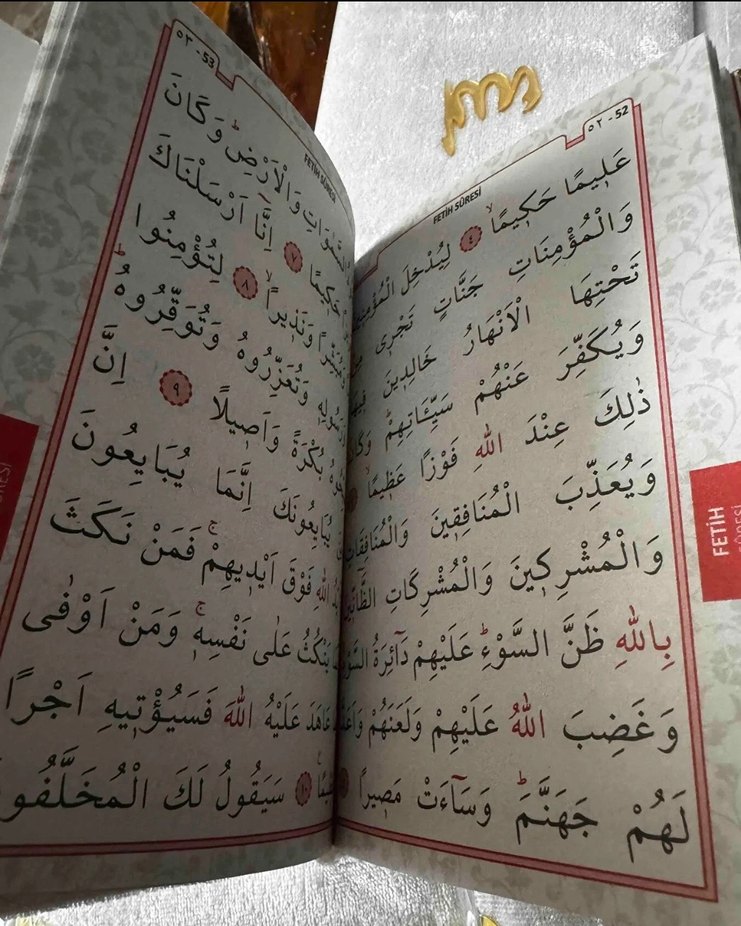 ٥٢ - 52
FETİH SÛRESİ
عَلٖيمًا حَكٖيمًاۙ ٤ لِيُدْخِلَ الْمُؤْمِنٖينَ
وَالْمُؤْمِنَاتِ جَنَّاتٍ تَجْرٖى مِنْ
تَحْتِهَا الْاَنْهَارُ خَالِدٖينَ فٖيهَا
وَيُكَفِّرَ عَنْهُمْ سَيِّـَٔاتِهِمْۜ وَكَانَ
ذٰلِكَ عِنْدَ اللّٰهِ فَوْزًا عَظٖيمًاۙ
وَيُعَذِّبَ الْمُنَافِقٖينَ وَالْمُنَافِقَاتِ
وَالْمُشْرِكٖينَ وَالْمُشْرِكَاتِ الظَّٓانّٖينَ
بِاللّٰهِ ظَنَّ السَّوْءِۜ عَلَيْهِمْ دَٓائِرَةُ السَّوْءِ
وَغَضِبَ اللّٰهُ عَلَيْهِمْ وَلَعَنَهُمْ وَاَعَدَّ
لَهُمْ جَهَنَّمَۜ وَسَٓاءَتْ مَصٖيرًا
FETİH
SÛRESİ
٥٣ - 53
FETİH SÛRESİ
السَّمٰوَاتِ وَالْاَرْضِۜ وَكَانَ
حَكٖيمًا ٧ اِنَّٓا اَرْسَلْنَاكَ
وَمُبَشِّرًا وَنَذٖيرًاۙ ٨ لِتُؤْمِنُوا
وَرَسُولِهٖ وَتُعَزِّرُوهُ وَتُوَقِّرُوهُۜ
بُكْرَةً وَاَصٖيلًا ٩ اِنَّ
يُبَايِعُونَكَ اِنَّمَا يُبَايِعُونَ
يَدُ اللّٰهِ فَوْقَ اَيْدٖيهِمْۚ فَمَنْ نَكَثَ
يَنْكُثُ عَلٰى نَفْسِهٖۚ وَمَنْ اَوْفٰى
عَاهَدَ عَلَيْهُ اللّٰهَ فَسَيُؤْتٖيهِ اَجْرًا
١٠ سَيَقُولُ لَكَ الْمُخَلَّفُونَ
SÛRESİ